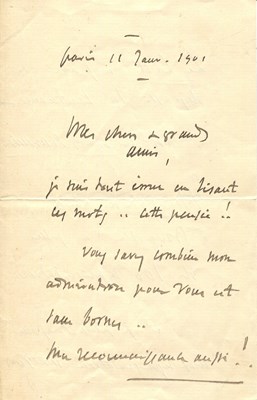 Paris 11 Janv. 1901
Mes chers & grands
amis,
je suis tout ému en lisant
ces mots .. cette pensée !!
Vous savez combien mon
admiration pour vous est
sans bornes ..
Ma reconnaissance aussi !